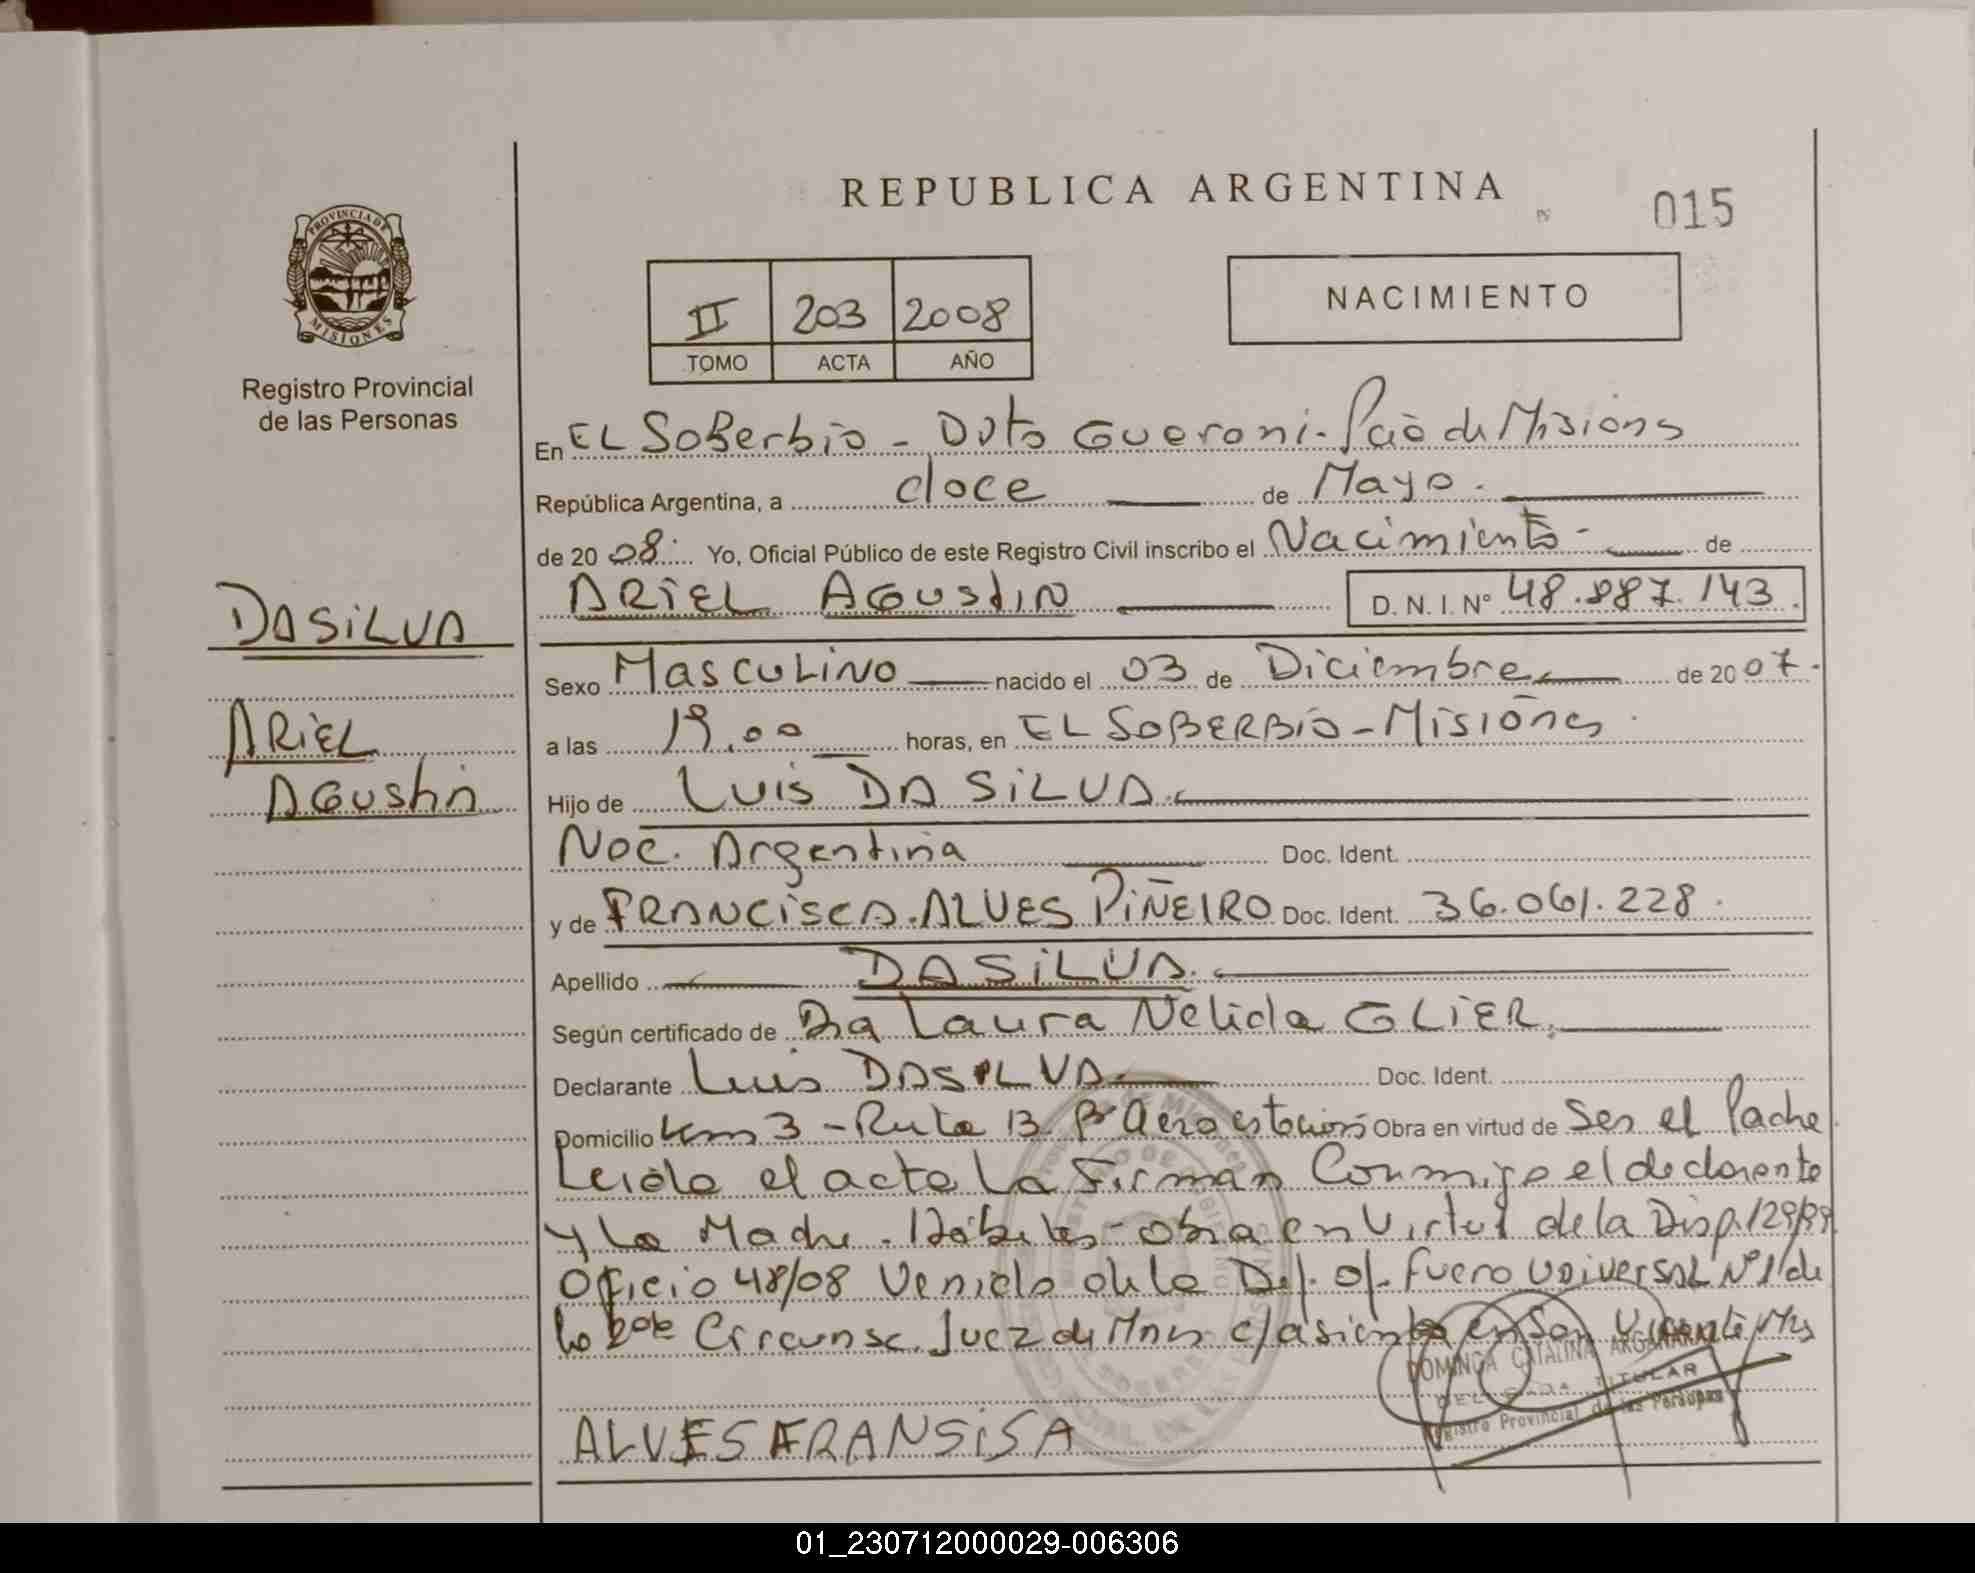 REPUBLICA ARGENTINA
015
PROVINCIA DE
MISIONES
Registro Provincial
de las Personas
II 203 2008
TOMO ACTA AÑO
NACIMIENTO
En EL SoBerbio - Dpto Guaraní - Pcia de Misiones
República Argentina, a doce de Mayo.
de 20 08. Yo, Oficial Público de este Registro Civil inscribo el Nacimiento - de
ARiEL AGUStIN D. N. I. N° 48.887.143.
DASiLVA
Sexo MascuLiNo nacido el 03 de Diciembre de 20 07.
ARiEL
a las 19.00 horas, en EL SOBERBiO - Misiones
AGUStin
Hijo de Luis DA SiLVA.
Nac. Argentina Doc. Ident.
y de FRANCiSCA. ALVES PiÑEIRO Doc. Ident. 36.061.228.
Apellido DASiLVA.
Según certificado de Dra Laura Nelida GLiER.
Declarante Luis DASiLVA. Doc. Ident.
Domicilio Km 3 - Ruta 13 B° Aeroestacion Obra en virtud de Ser el Padre
Leida el acta La Firman Conmigo el declarante
y La Madre. Hábiles - obra en Virtud de la Disp. 129/99
Oficio 48/08 Venido de la Def. of. Fuero UniverSAL N° 1 de
la 2da Circunsc. Jud de Mnes c/asiento en San Vicente Mns
DOMINGA CATALINA
DELEGADA TITULAR
Registro Provincial de las Personas
ALVES FRANSiSA
01_230712000029-006306